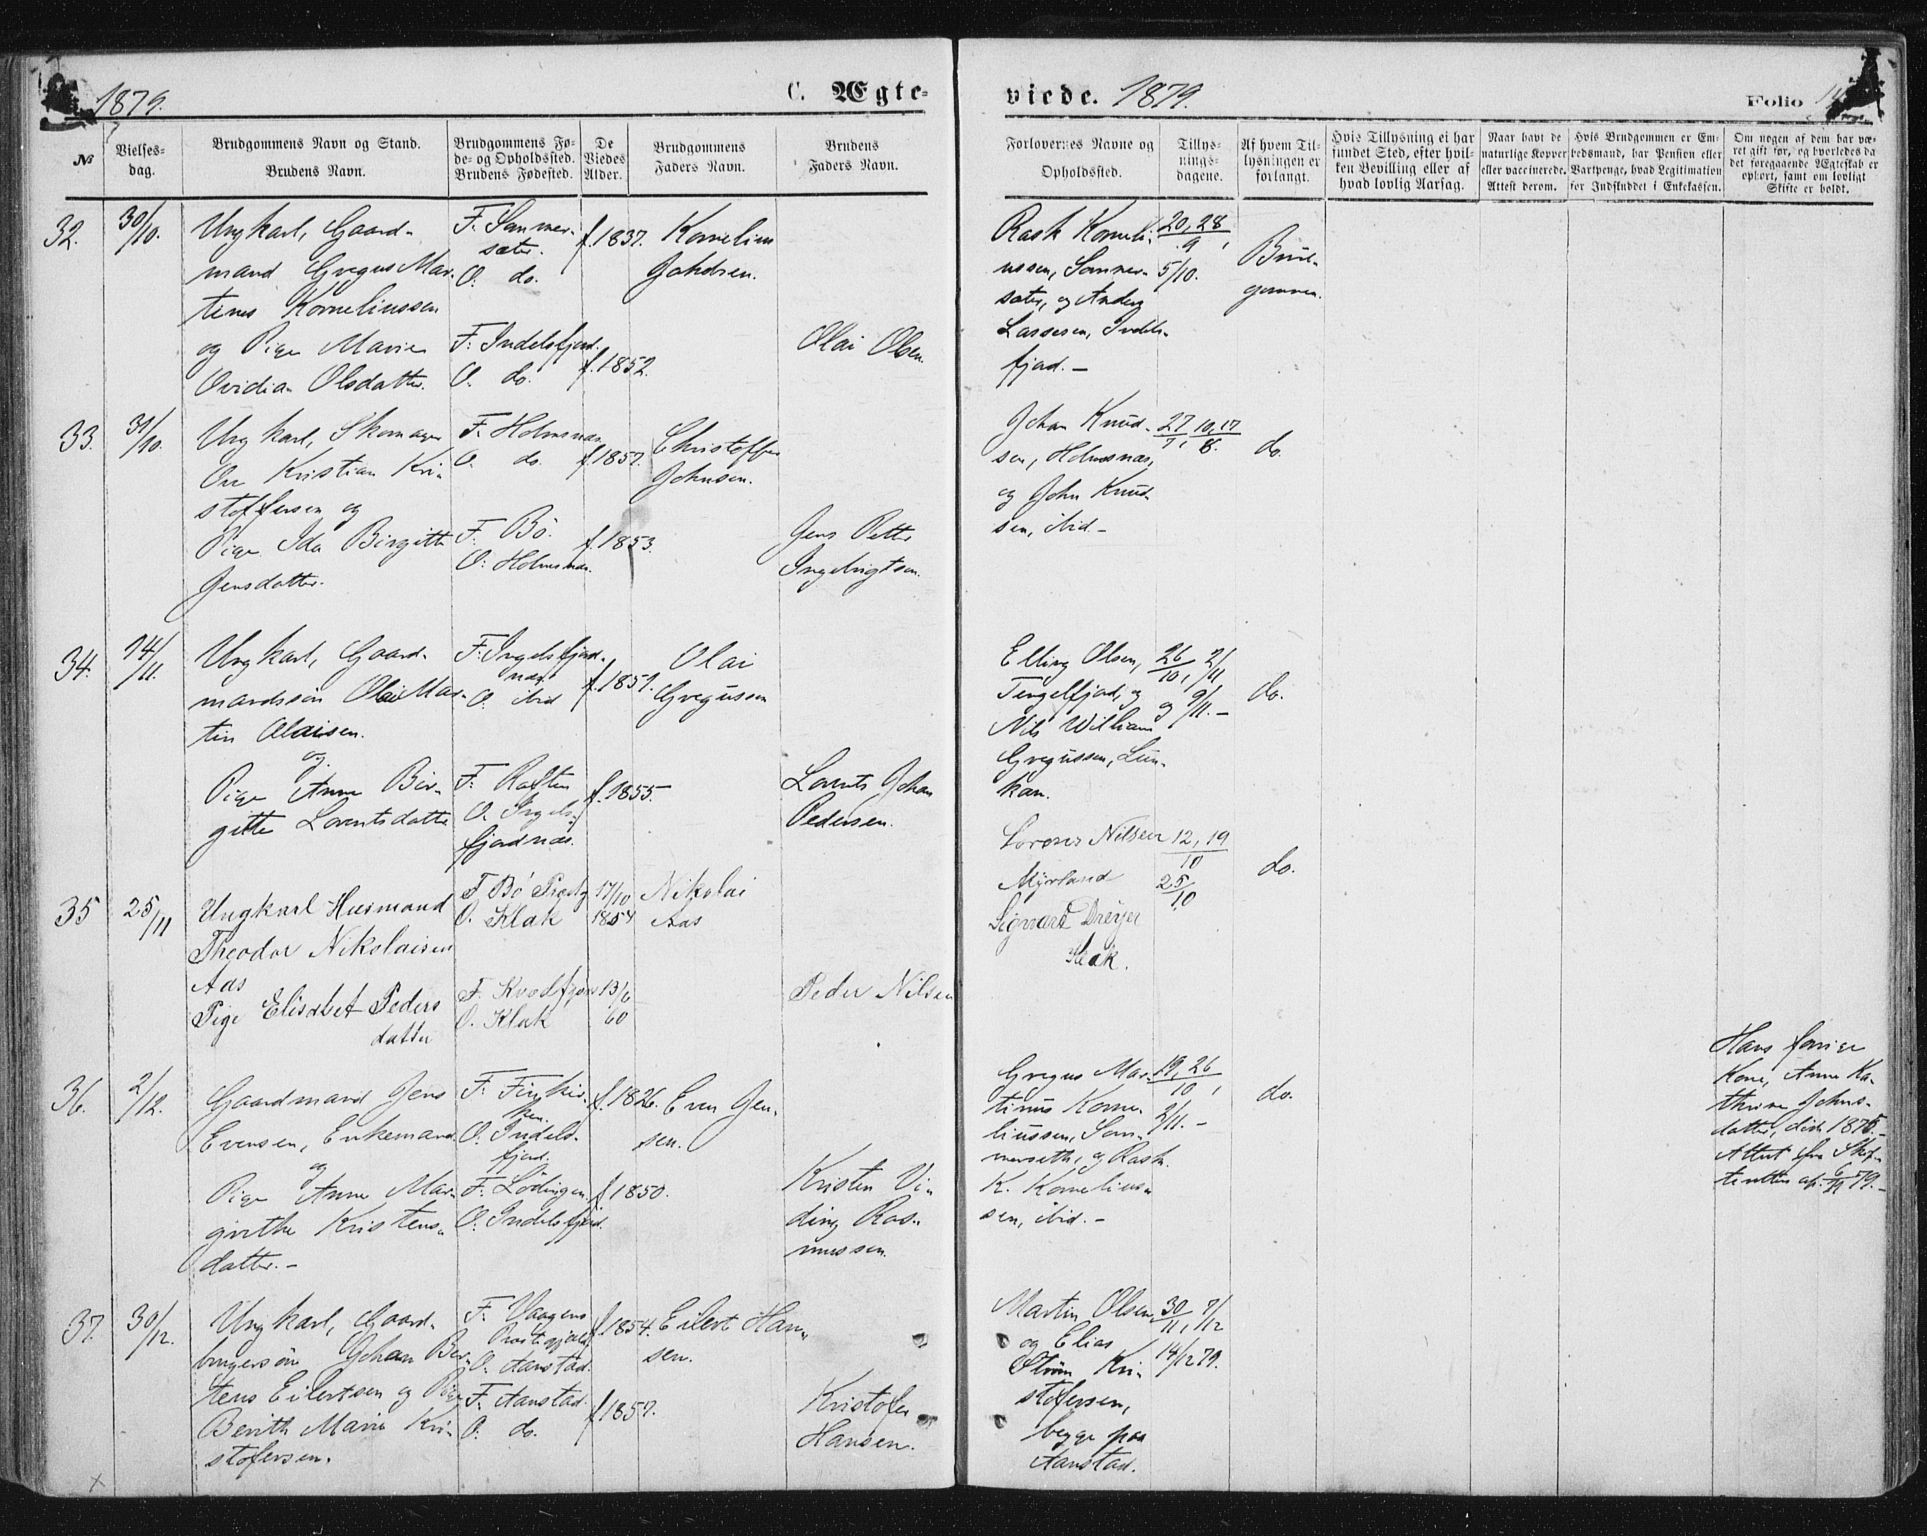 1879.
C. Ægte-
viede. 1879.
Folio
№
Vielses-
dag.
Brudgommens Navn og Stand.
Brudens Navn.
Brudgommens Fø-
de- og Opholdssted.
Brudens Fødested.
De
Viedes
Alder.
Brudgommens
Faders Navn.
Brudens
Faders Navn.
Forlovernes Navne og
Opholdssted.
Tillys-
nings-
dagene.
Af hvem Til-
lysningen er
forlangt.
Hvis Tillysning ei har
fundet Sted, efter hvil-
ken Bevilling eller af
hvad lovlig Aarsag.
Naar havt de
naturlige Kopper
eller vaccinerede.
Attest derom.
Hvis Brudgommen er Em-
bedsmand, har Pension eller
Vartpenge, hvad Legitimation
for Indskuddet i Enkekassen.
Om nogen af dem har væ-
ret gift før, og hvorledes da
det foregaaende Ægteskab er
ophørt, samt om lovligt
Skifte er holdt.
32.
30/10.
Ungkarl, Gaard-
mand Gregus Mar-
tinus Korneliussen
og Pige Marie
Ovidia Olsdatter.
F. Sommer-
sæter.
O. do.
F. Indelsfjord.
O. do.
f. 1837.
f. 1852.
Kornelius
Johnsen.
Olai Olsen.
Rask Korneli-
ussen, Sommer-
sæter, og Anders
Lassesen, Indels-
fjord. —
20, 28/9,
5/10.
Brud-
gommen.
33.
31/10.
Ungkarl, Skomager
Ole Kristian Kri-
stoffersen og
Pige Ida Birgitte
Jensdatter.
F. Holmsnæs
O. do.
F. Bö.
O. Holmsnæs.
f. 1857.
f. 1853.
Christoffer
Johnsen.
Jens Petter
Ingebrigtsen.
Johan Knud-
sen, Holmsnæs,
og John Knud-
sen, ibid —
27/7, 10, 17/8.
do.
34.
14/11.
Ungkarl, Gaard-
mandssøn Olai Mar-
tin Olaisen.
og
Pige Anne Bir-
gitte Lorentsdatter
F. Ingelsfjord-
næs.
O. ibid
F. Raften
O. Ingels-
fjordnæs.
f. 1857.
f. 1855.
Olai
Gregussen
Lorents Johan
Pedersen.
Elling Olsen,
Tengelfjord, og
Nils William
Gregussen, Lun-
kan.
26/10, 2/11
og 9/11. —
do.
35
25/11
Ungkarl Husmand
Theodor Nikolaisen
Aas
Pige Elisabet Peders
datter
F. Bö Prestg
O. Klak
F. Kvedfjord
O. Klak
17/10
1854
13/6
60
Nikolai
Aas
Peder Nilsen
Lorens Nilsen
Myrland
Sigvard Dreyer
Klak.
12, 19/10
25/10
do.
36.
2/12.
Gaardmand Jens
Evensen, Enkemand
og
Pige Anne Mar-
grethe Kristens-
datter. —
F. Finkir-
ken.
O. Indels-
fjord.
F. Lödingen
O. Indelsfjord.
f. 1826.
f. 1850.
Even Jen-
sen.
Kristen Vi-
ding Ras-
mussen.
Gregus Mar-
tinus Korne-
liussen, Som-
merseth, og Rask
K. Kornelius-
sen, ibid. —
19, 26/10,
2/11. —
do.
Hans forrige
Kone, Anne Ka-
thrine Johns-
datter, död 1875.
Attest fra Skif-
teretten af 6/11 79. —
37.
30/12.
Ungkarl, Gaard-
brugersøn Johan Ber-
tens Eilertsen og Pige
Berith Marie Kri-
stofersen.
F. Vaagens
Præstegjæld.
O. Aanstad.
F. Aanstad.
O. do.
f. 1854.
f. 1857.
Eilert Han-
sen.
Kristofer
Hansen.
Martin Olsen
og Elias
Ström Kri-
stofersen,
begge paa
Aanstad.
30/11, 7/12
14/12 79.
x